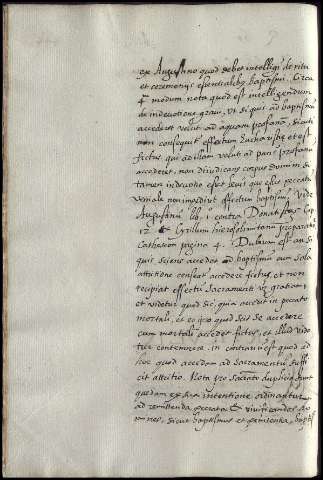 ex Augustino quod debet intelligi de ritu
et ceremonijs essentialib baptismi. Circa
4m modum nota quod est intelligendum
de indevotione gravi, ut si quis ad baptismũ
accederet velut ad aquam profanã, sicuti
non consequit effectum Eucharistiæ et est
fictus, qui ad illam velut ad panẽ profanũ
accederet, non dijudicans corpus domini si
tamen indevotio esset levis que esset peccatũ
veniale non impediret effectum baptismi. Vide
Augustinũ lib. 1 contra Donatistas Cap
12 & Cyrillum hierosolimitanũ præparatio
Cathecesim pagina 4. Dubium est an si
quis sciens accedat ad baptismũ cum sola
attritione censeat accedere fictus, et non
recipiat effectũ Sacramenti gratiam
et videtur quod sic, quia accedit in peccato
mortali, et eo ipso quod scit se accedere
cum mortali accedit fictus, et illud vide
tur contemnere. in contrariũ est quod ad
hoc quod accedam ad Sacramentũ suffi
cit attritio. Nota pro Sacrãto duplicia sunt
quedam ex sua intentione ordinantur
ad remittenda peccata & vivificandos ho
mines, sicut baptismus et penitentia, baptis